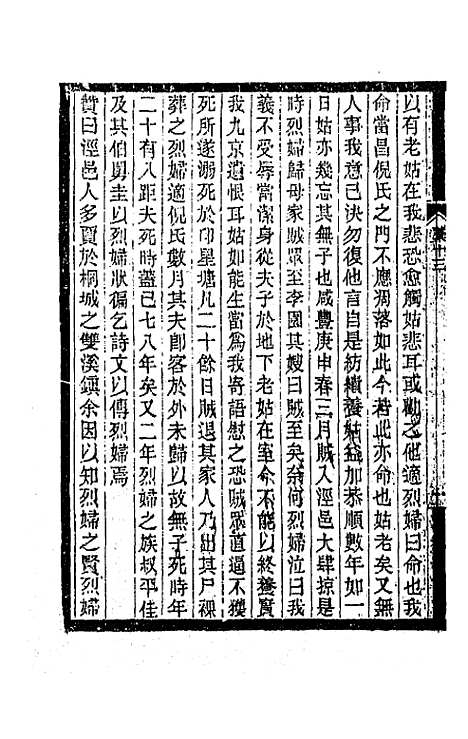 以有老姑在我悲恐愈觸姑悲耳或勸之他適烈婦曰命也我
命當昌倪氏之門不應凋落如此今若此亦命也姑老矣又無
人事我意已決勿復他言自是紡績養姑益加恭順數年如一
日姑亦幾忘其無子也咸豐庚申春二月賊入涇邑大肆掠是
時烈婦歸母家賊眾至李園其嫂曰賊至矣奈何烈婦泣曰我
義不受辱當潔身從夫子於地下老姑在室命不能以終養實
我九京遺恨耳姑如能生當為我寄語慰之恐賊眾道逼不獲
死所遂溺死於印星塘凡二十餘日賊退其家人乃出其尸槥
葬之烈婦適倪氏數月其夫卽客於外未歸以故無子死時年
二十有八距夫死時蓋已七八年矣又二年烈婦之族叔平佳
及其伯舅圭以烈婦狀徧乞詩文以傳烈婦焉
贊曰涇邑人多賈於桐城之雙溪鎮余因以知烈婦之賢烈婦
十三